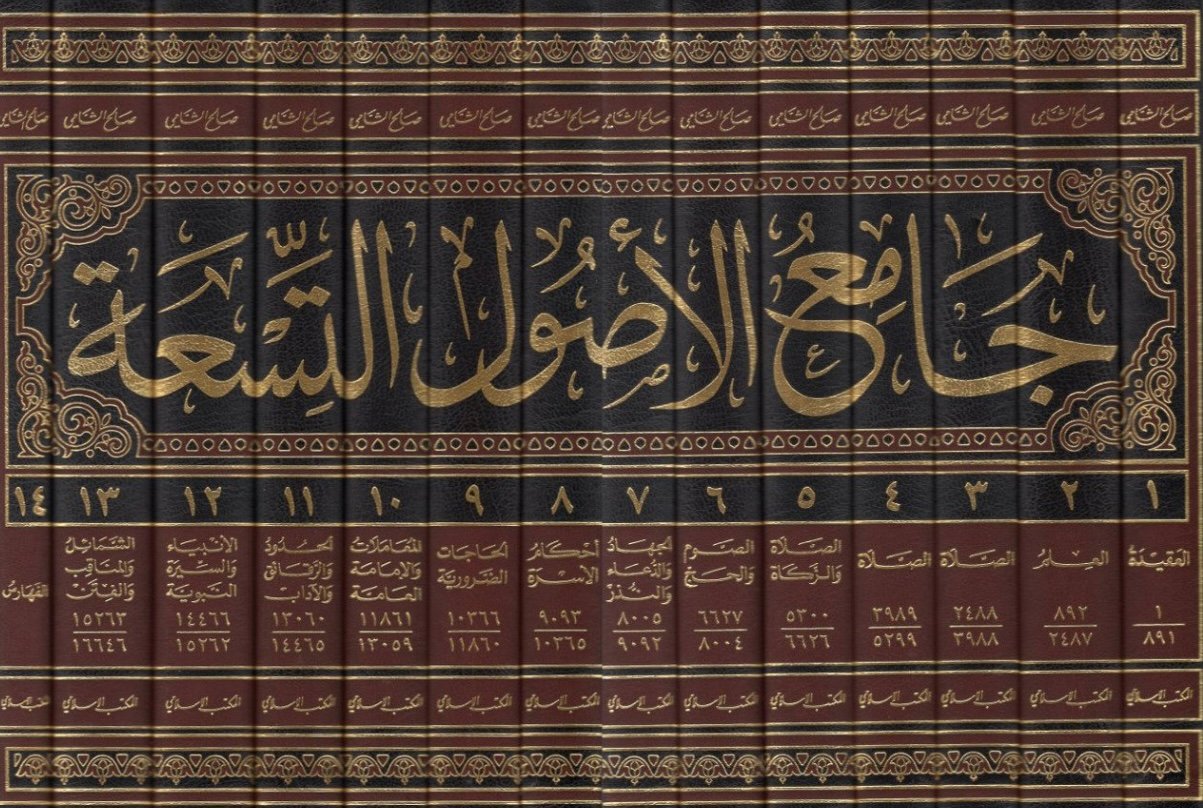 صالح الشامي صالح الشامي صالح الشامي صالح الشامي صالح الشامي صالح الشامي صالح الشامي صالح الشامي صالح الشامي صالح الشامي صالح الشامي صالح الشامي صالح الشامي صالح الشامي
جَامِعُ الأُصُولِ التِّسْعَة
١ ٢ ٣ ٤ ٥ ٦ ٧ ٨ ٩ ١٠ ١١ ١٢ ١٣ ١٤
العقيدة
١
٨٩١
العلم
٨٩٢
٢٤٨٧
الصلاة
٢٤٨٨
٣٩٨٨
الصلاة
٣٩٨٩
٥٢٩٩
الصلاة
والزكاة
٥٣٠٠
٦٦٢٦
الصوم
والحج
٦٦٢٧
٨٠٠٤
الجهاد
والدعاء
والنذر
٨٠٠٥
٩٠٩٢
أحكام
الأسرة
٩٠٩٣
١٠٣٦٥
الحاجات
الضرورية
١٠٣٦٦
١١٨٦٠
المعاملات
والإمامة
العامة
١١٨٦١
١٣٠٥٩
الحدود
والرقائق
والآداب
١٣٠٦٠
١٤٤٦٥
الأنبياء
والسيرة
النبوية
١٤٤٦٦
١٥٢٦٢
الشمائل
والمناقب
والفتن
١٥٢٦٣
١٦٦٤٦
الفهارس
المكتب الإسلامي المكتب الإسلامي المكتب الإسلامي المكتب الإسلامي المكتب الإسلامي المكتب الإسلامي المكتب الإسلامي المكتب الإسلامي المكتب الإسلامي المكتب الإسلامي المكتب الإسلامي المكتب الإسلامي المكتب الإسلامي المكتب الإسلامي